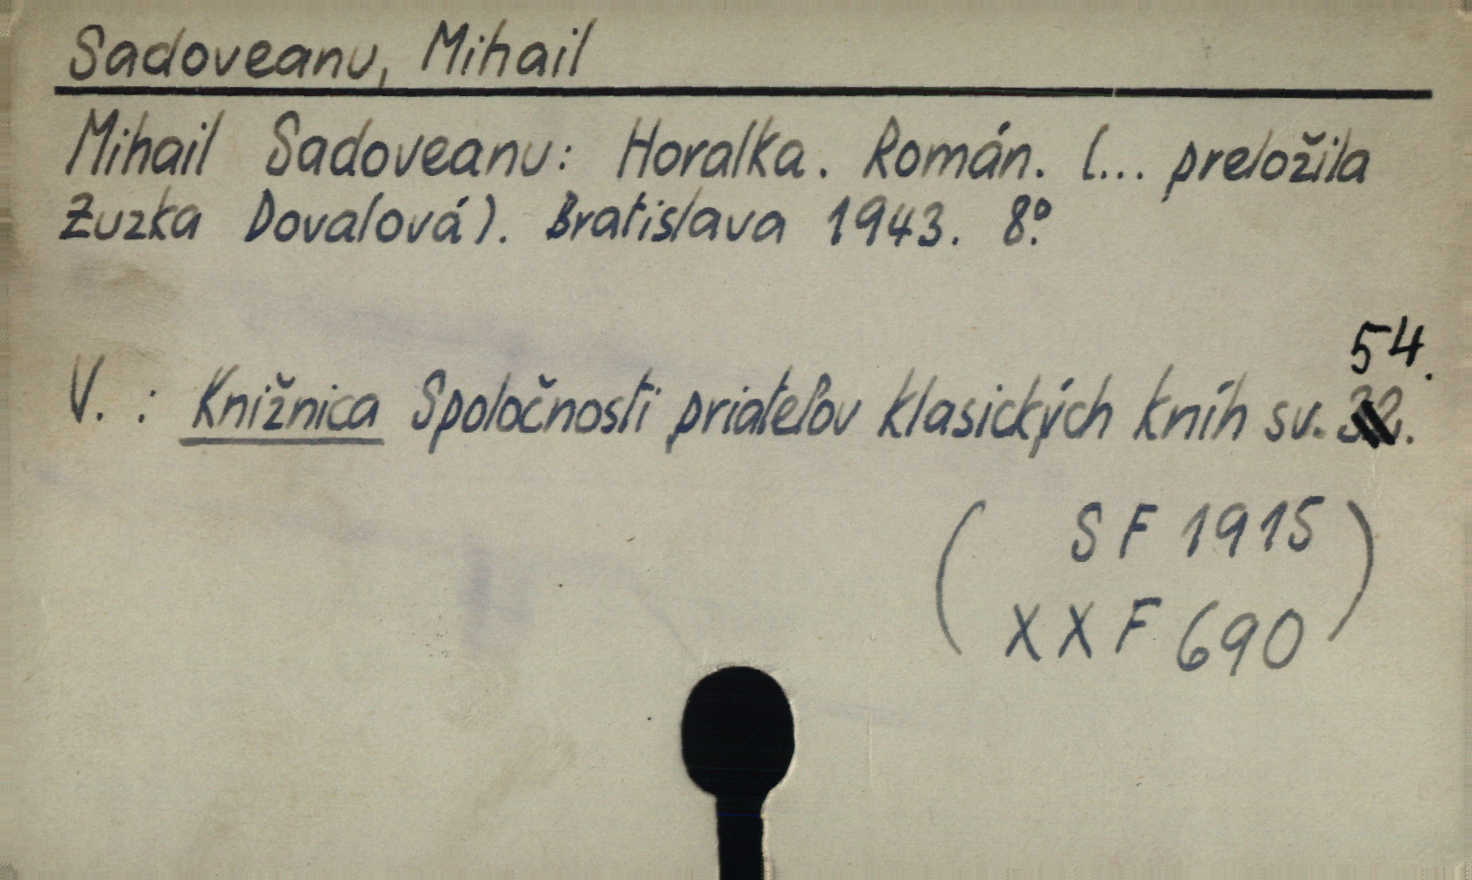 Sadoveanu, Mihail
Mihail Sadoveanu: Horalka. Román. (... preložila
Zuzka Dovaľová). Bratislava 1943. 8°.
54.
V. : Knižnica Spoločnosti priateľov klasických kníh sv.
( S F 1915
X X F 690 )